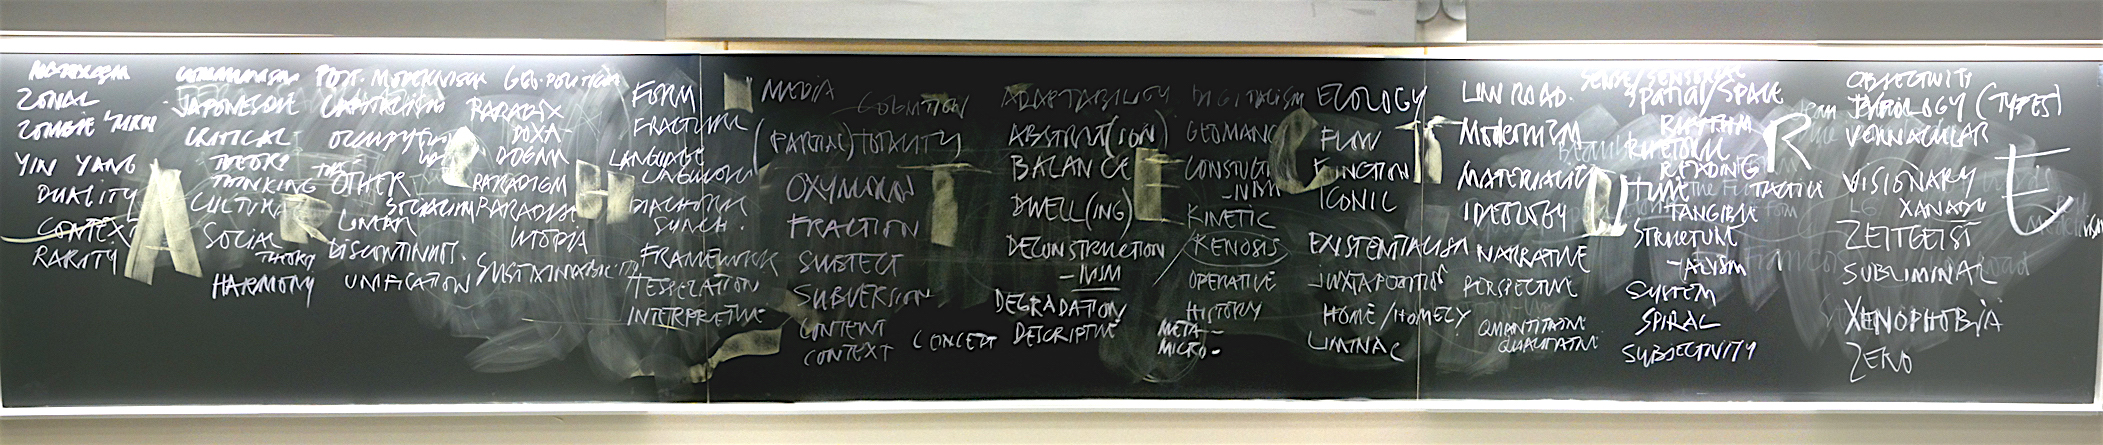 ZONAL
YIN YANG
DUALITY
CONTEXT
RARITY
JAPONESQUE
CRITICAL
THEORY
THINKING
CULTURAL
SOCIAL
THEORY
HARMONY
POST-MODERNISM
CAPITALISM
THE
OTHER
SOCIALISM
LINEAR
DISCONTINUIT.
UNIFICATION
GEO-POLITICAL
PARADOX
DOXA-
DOGMA
PARADIGM
PARADISE
UTOPIA
SUSTAINABILITY
FORM
FRACTURE
LANGUAGE
SYNCH.
FRAMEWORK
TESSELATION
INTERPRETIVE
MEDIA
COGNITION
(PARTIAL) TOTALITY
OXYMORON
FRACTION
SUBJECT
SUBVERSION
CONTENT
CONTEXT
CONCEPT
ADAPTABILITY
ABSTRACT(ION)
BALANCE
DWELL(ING)
DECONSTRUCTION
-IVISM
DEGRADATION
DESCRIPTIVE
DIGITALISM
GEOMANC
CONSTUCT
-IVISM
KINETIC
KENOSIS
OPERATIVE
HISTORY
META-
MICRO-
ECOLOGY
FLOW
FUNCTION
ICONIC
EXISTENTIALISM
JUXTAPOSITION
HOME/HOMELY
LIMINAL
LINN ROAD.
MODERNISM
MATERIALITY
IDEOLOGY
NARRATIVE
PERSPECTIVE
QUANTITATIVE
QUALITATIVE
SENSE/SENSORIAL
SPATIAL/SPACE
RHYTHM
RHETORIC
READING
TIME
TACTILE
TANGIBLE
STRUCTURE
-ALISM
SYSTEM
SPIRAL
SUBJECTIVITY
OBJECTIVITY
TYPOLOGY (TYPES)
VERNACULAR
VISIONARY
XANADU
ZEITGEIST
SUBLIMINAL
XENOPHOBIA
ZENO
A R C H I T E C T U R E